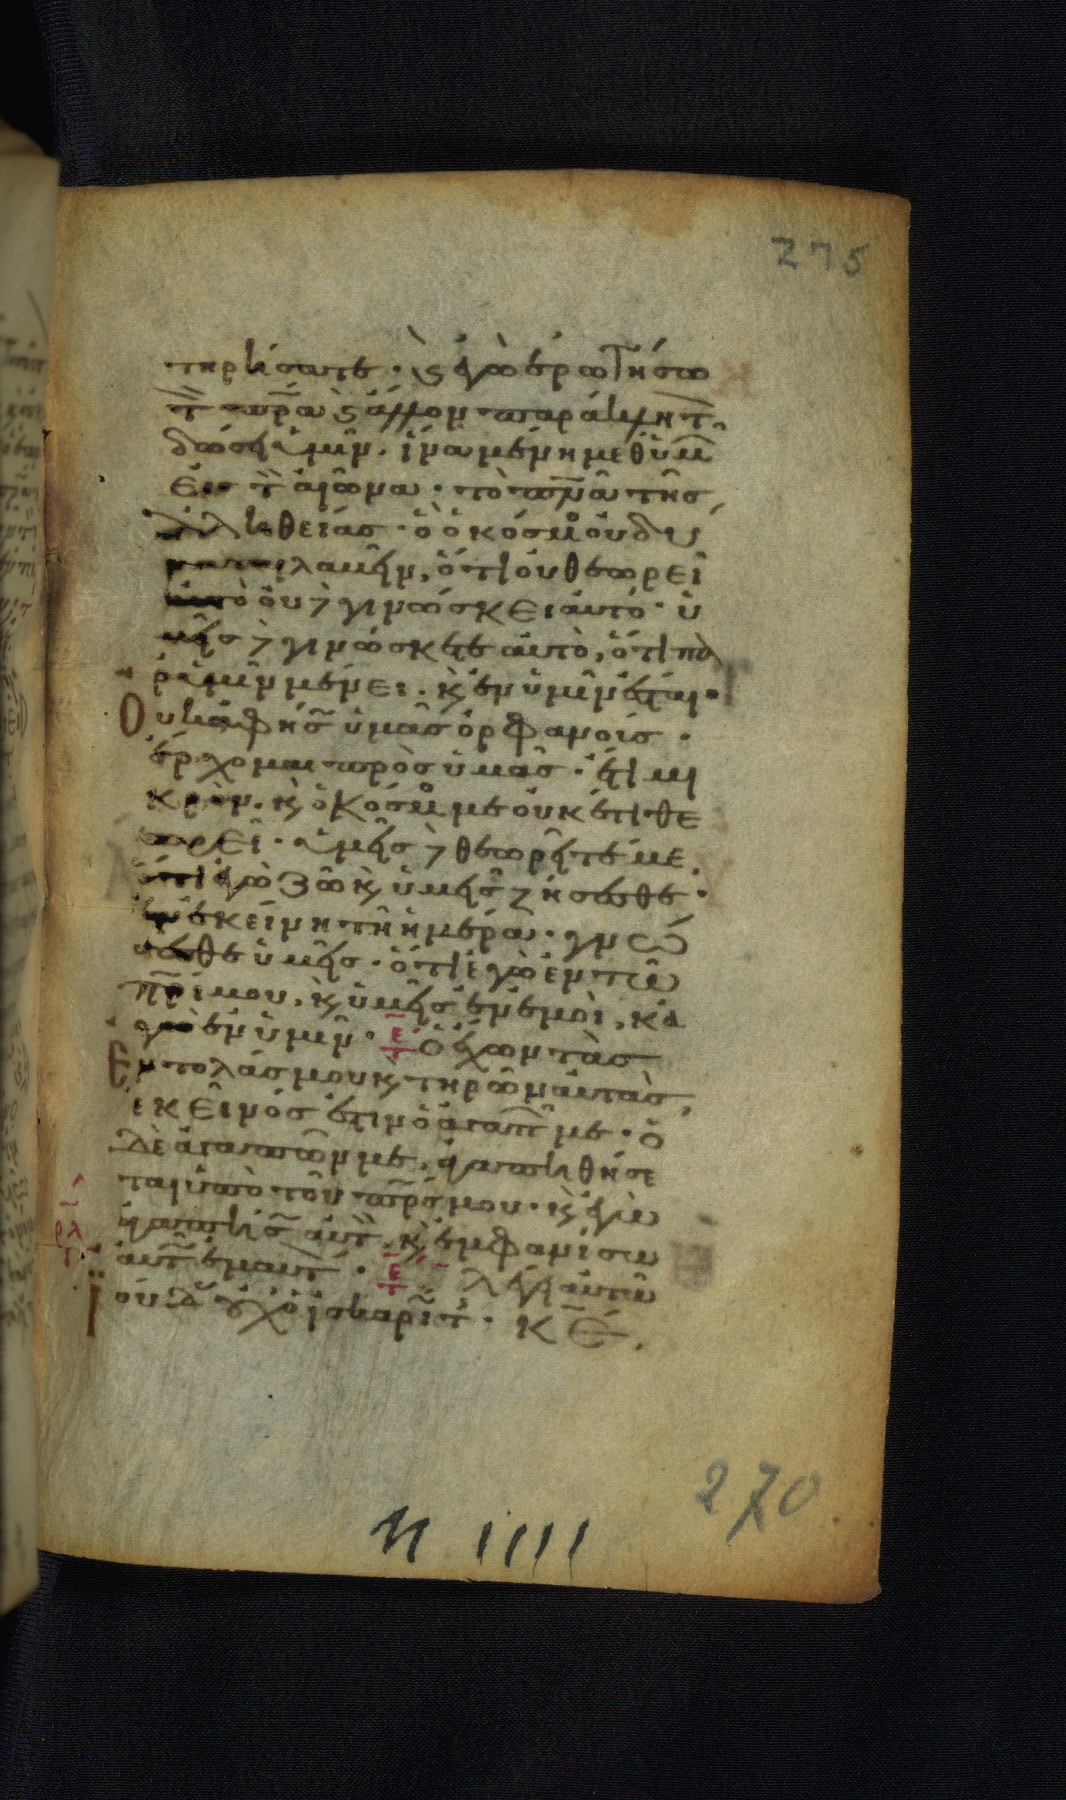 275
τηρήσατε · ϗ ἐγὼ ἐρωτήσω
τ̀ π̅ρ̅α ϗ ἄλλον παράκλητ̀
δώσει ὑμῖν · ἵνα μένη μεθ ὑμ῀
εἰς τ̀ αἰῶνα · τὸ π̅ν̅α τῆς
ἀληθείας · ὃ ὁ κόσμο οὐ δύ
ναται λαβεῖν, ὅτι οὐ θεωρεῖ
αὐτὸ οὐδὲ γινώσκει αὐτό · ὑ
μεῖς δὲ γινώσκετε αὐτὸ, ὅτι πα
ρ ὑμῖν μένει · ϗ ἐν ὑμῖν ἔσται ·
Οὐκ ἀφήσ῀ ὑμᾶς ὀρφανοίς ·
ἔρχομαι πρὸς ὑμᾶς · ἔτι μι
κρὸν · ϗ ὁ κόσμο με οὐκέτι θε
ωρεῖ · ὑμεῖς δὲ θεωρεῖτέ με,
ὅτι ἐγὼ ζῶ ϗ ὑμεῖς ζήσεσθε ·
ἐν ἐκείνη τῆ ἡμέρα · γνώ
σεσθε ὑμεῖς · ὅτι ἐγὼ ἐν τῶ
π̅ρ̅ί μου, ϗ ὑμεῖς ἐν ἐμοὶ, κἀ
γὼ ἐν ὑμῖν · ὁ ἔχων τὰς
Ἐντολάς μου ϗ τηρῶν αὐτὰς,
ἐκεῖνός ἐστιν ὁ ἀγαπῶν με · ὁ
δὲ ἀγαπῶν με, ἀγαπηθήσε
ται ὑπὸ τοῦ π̅ρ̅ς μου · ϗ ἐγὼ
ἀγαπήσ῀ αὐτ̀ · ϗ ἐμφανίσω
αὐτ῀ ἐμαυτ̀ · λέγει αὐτῶ
Ἰούδ῀ οὐχ ὁ ἰσκαριώτ · κ̅ε̅,
270